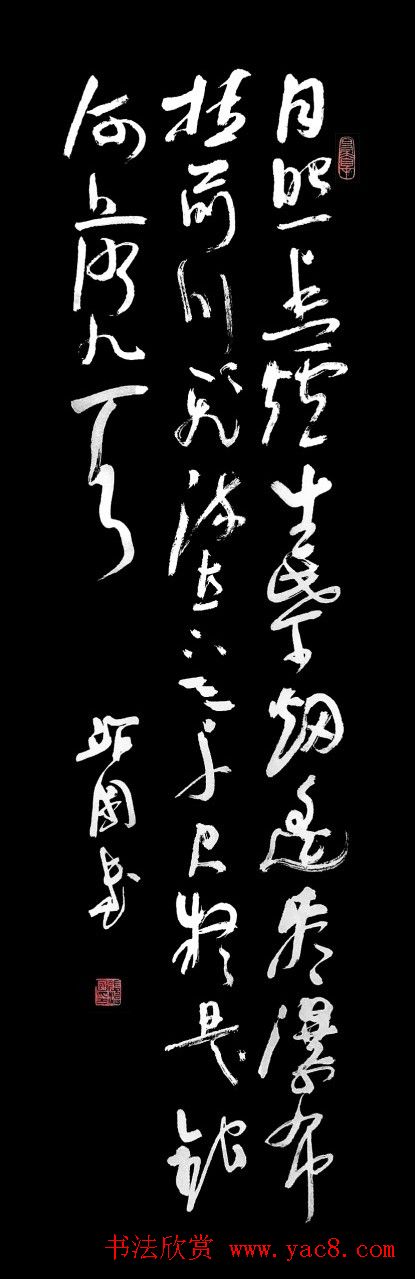 日照香爐生紫烟遙看瀑布
挂前川飛流直下三千尺疑是銀
河落九天
國書
书法欣赏 www.yac8.com